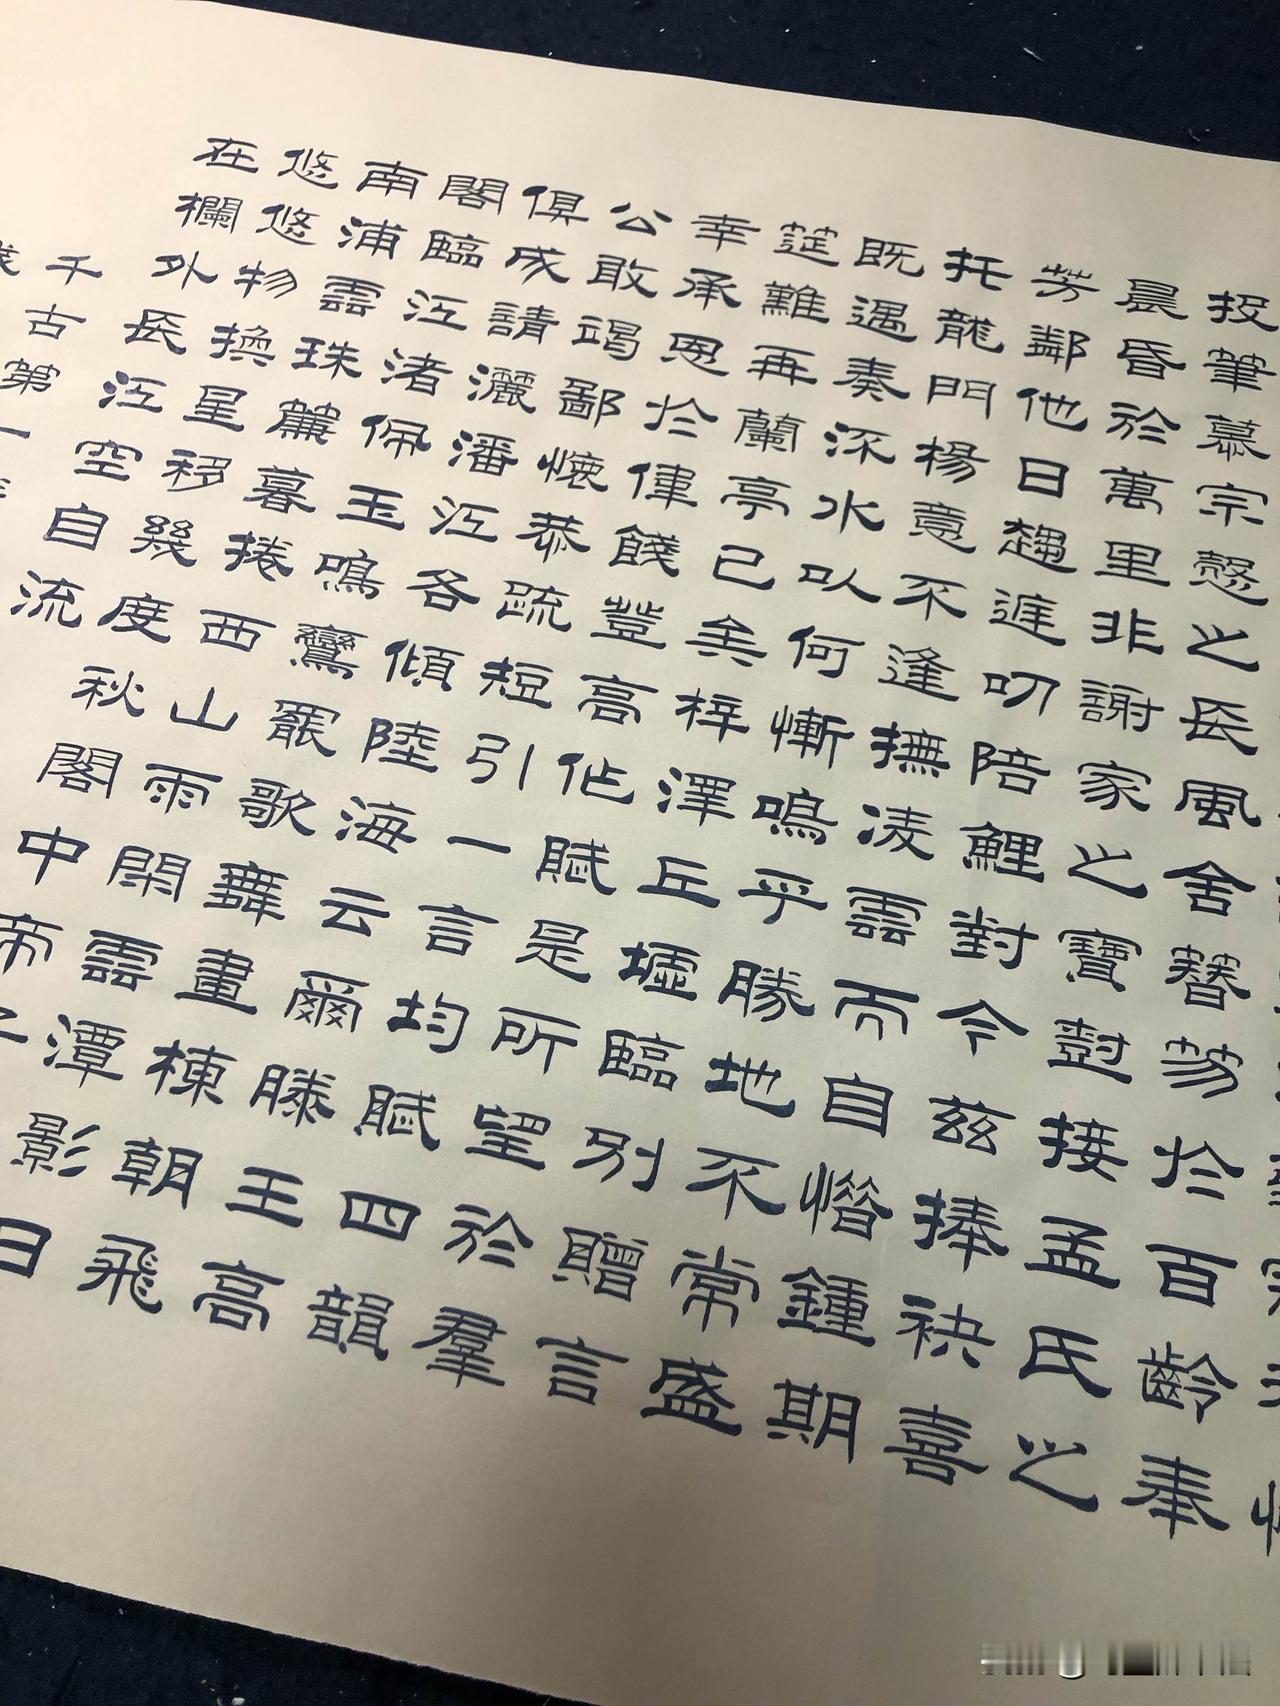 投筆慕宗愨之長風舍簪笏於百齡奉
晨昏於萬里非謝家之寶樹接孟氏之
芳鄰他日趨庭叨陪鯉對今茲捧袂喜
托龍門楊意不逢撫凌雲而自惜鍾期
既遇奏流水以何慚鳴乎勝地不常盛
筵難再蘭亭已矣梓澤丘墟臨別贈言
幸承恩於偉餞登高作賦是所望於羣
公敢竭鄙懷恭疏短引一言均賦四韻
俱成請灑潘江各傾陸海云爾滕王高
閣臨江渚佩玉鳴鸞罷歌舞畫棟朝飛
南浦雲珠簾暮捲西山雨閑雲潭影日
悠悠物換星移幾度秋閣中帝子
在欄外長江空自流
千古第一